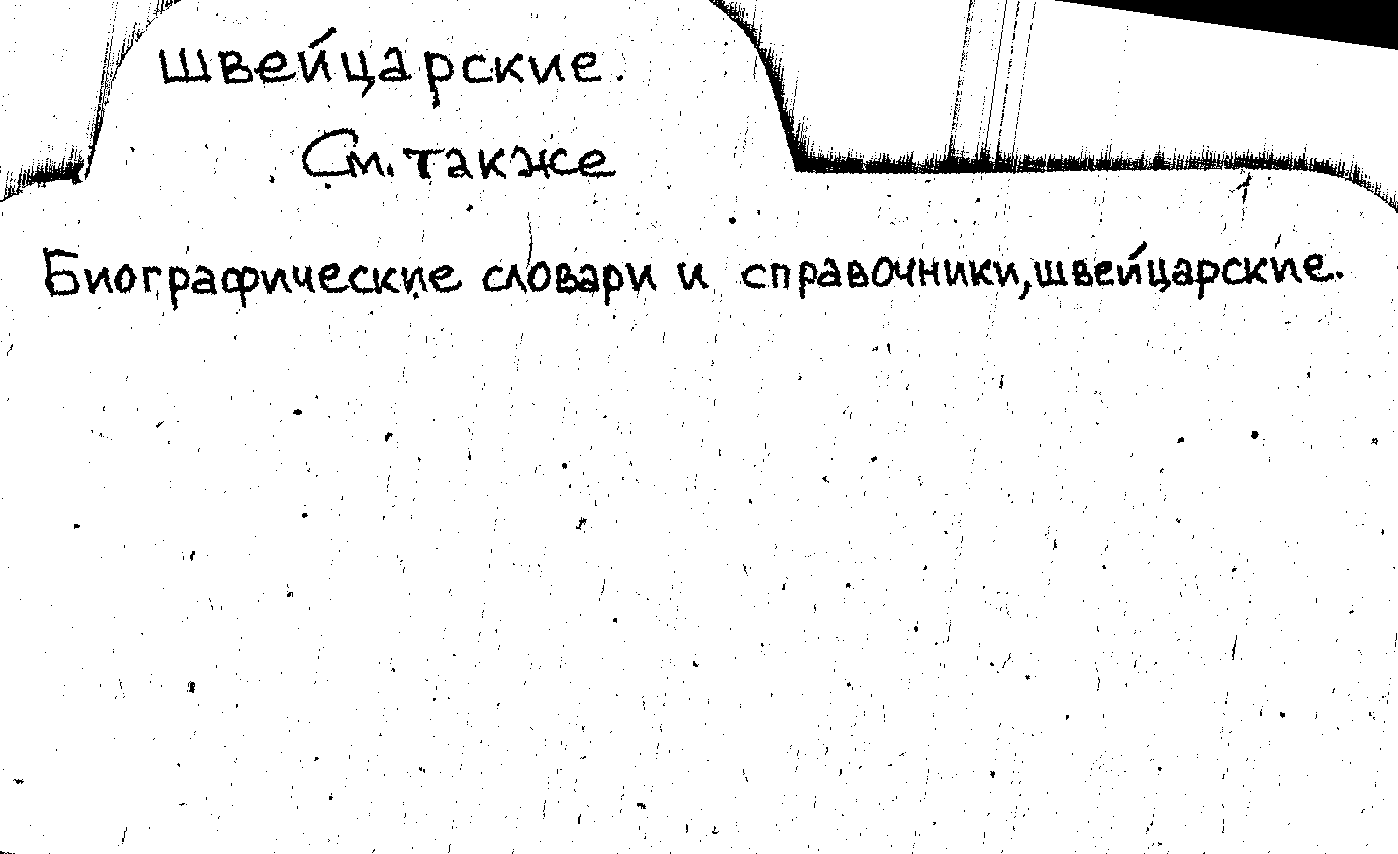 швейцарские.
См. также
Биографические словари и справочники, швейцарские.